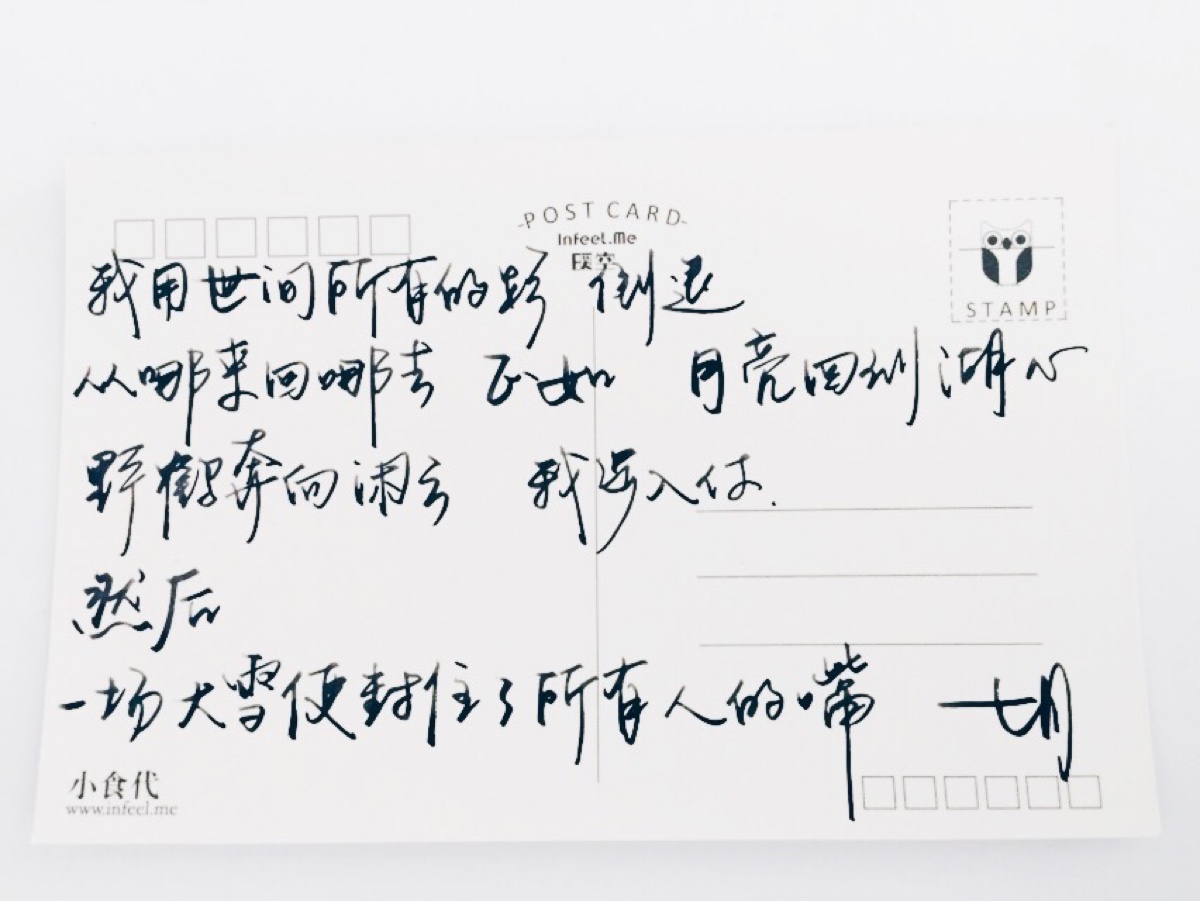 POST CARD
Infeel.Me
STAMP
我用世间所有的路 倒退
从哪来回哪去 正如 月亮回到湖心
野鹤奔向闲云 我步入你.
然后
一场大雪便封住了所有人的嘴 一七月
小食代
www.infeel.me